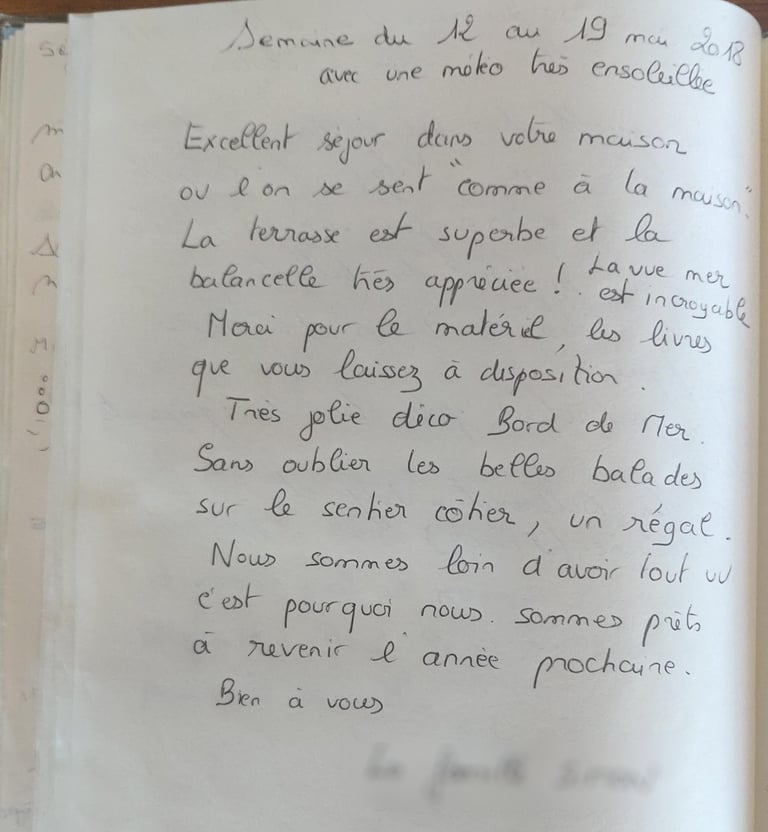 Semaine du 12 au 19 mai 2018
avec une météo très ensoleillée
Excellent séjour dans votre maison
ou l'on se sent "comme à la maison".
La terrasse est superbe et la
balancelle très appréciée ! La vue mer
est incroyable
Merci pour le matériel, les livres
que vous laissez à disposition.
Très jolie déco Bord de Mer.
Sans oublier les belles balades
sur le sentier côtier, un régal.
Nous sommes loin d'avoir tout vu
c'est pourquoi nous sommes prêts
à revenir l'année prochaine.
Bien à vous